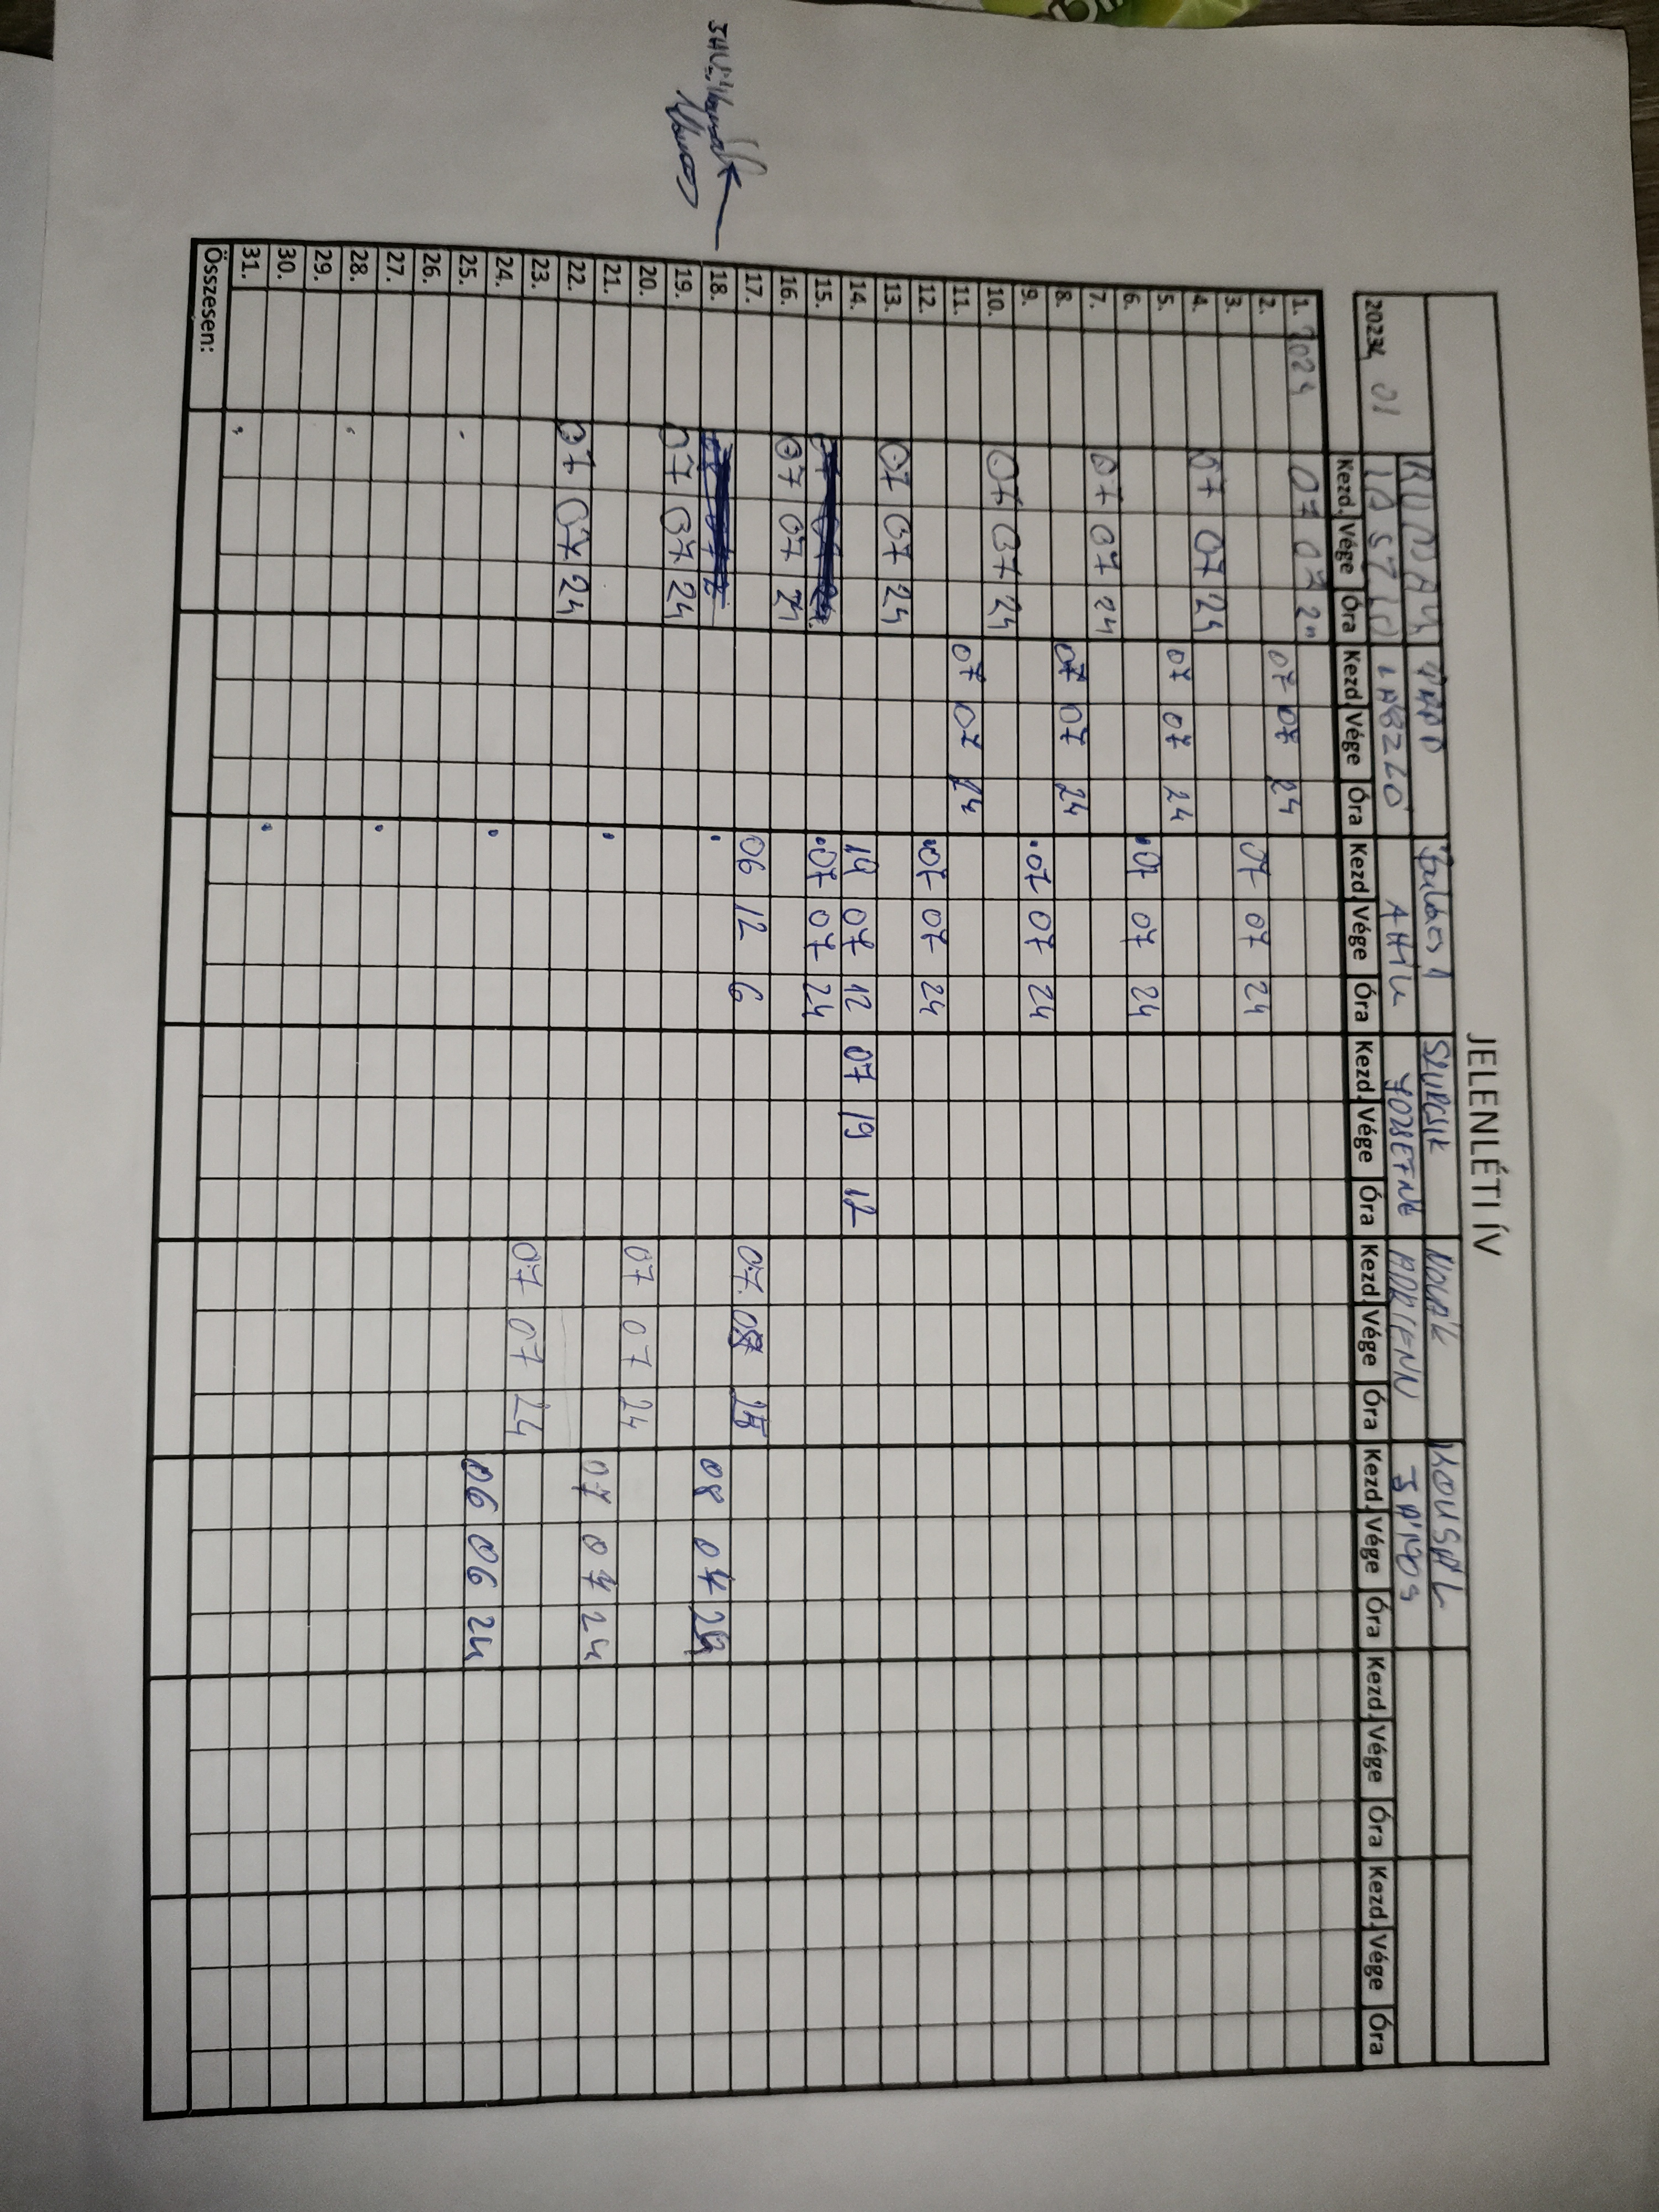 JELENLÉTI ÍV
PAPP SZURCSIK NOVÁK
2023 01 LÁSZLÓ LÁSZLÓ JÓZSEFNÉ ADRIENN JÁNOS
Kezd. Vége Óra Kezd. Vége Óra Kezd. Vége Óra Kezd. Vége Óra Kezd. Vége Óra Kezd. Vége Óra Kezd. Vége Óra Kezd. Vége Óra
1. 2024 07 07 24
2. 07 07 24
3. 07 07 24
4. 07 07 24
5. 07 07 24
6. 07 07 24
7. 07 07 24
8. 07 07 24
9. 07 07 24
10. 07 07 24
11. 07 07 24
12. 07 07 24
13. 07 07 24
14. 19 07 12 07 19 12
15. 07 07 24
16. 07 07 24
17. 06 12 6 07
18. 08 07
19. 07 07 24
20. 07 07 24
21. 07 07 24
22. 07 07 24
23. 07 07 24
24.
25. 06 06 24
26.
27.
28.
29.
30.
31.
Összesen: